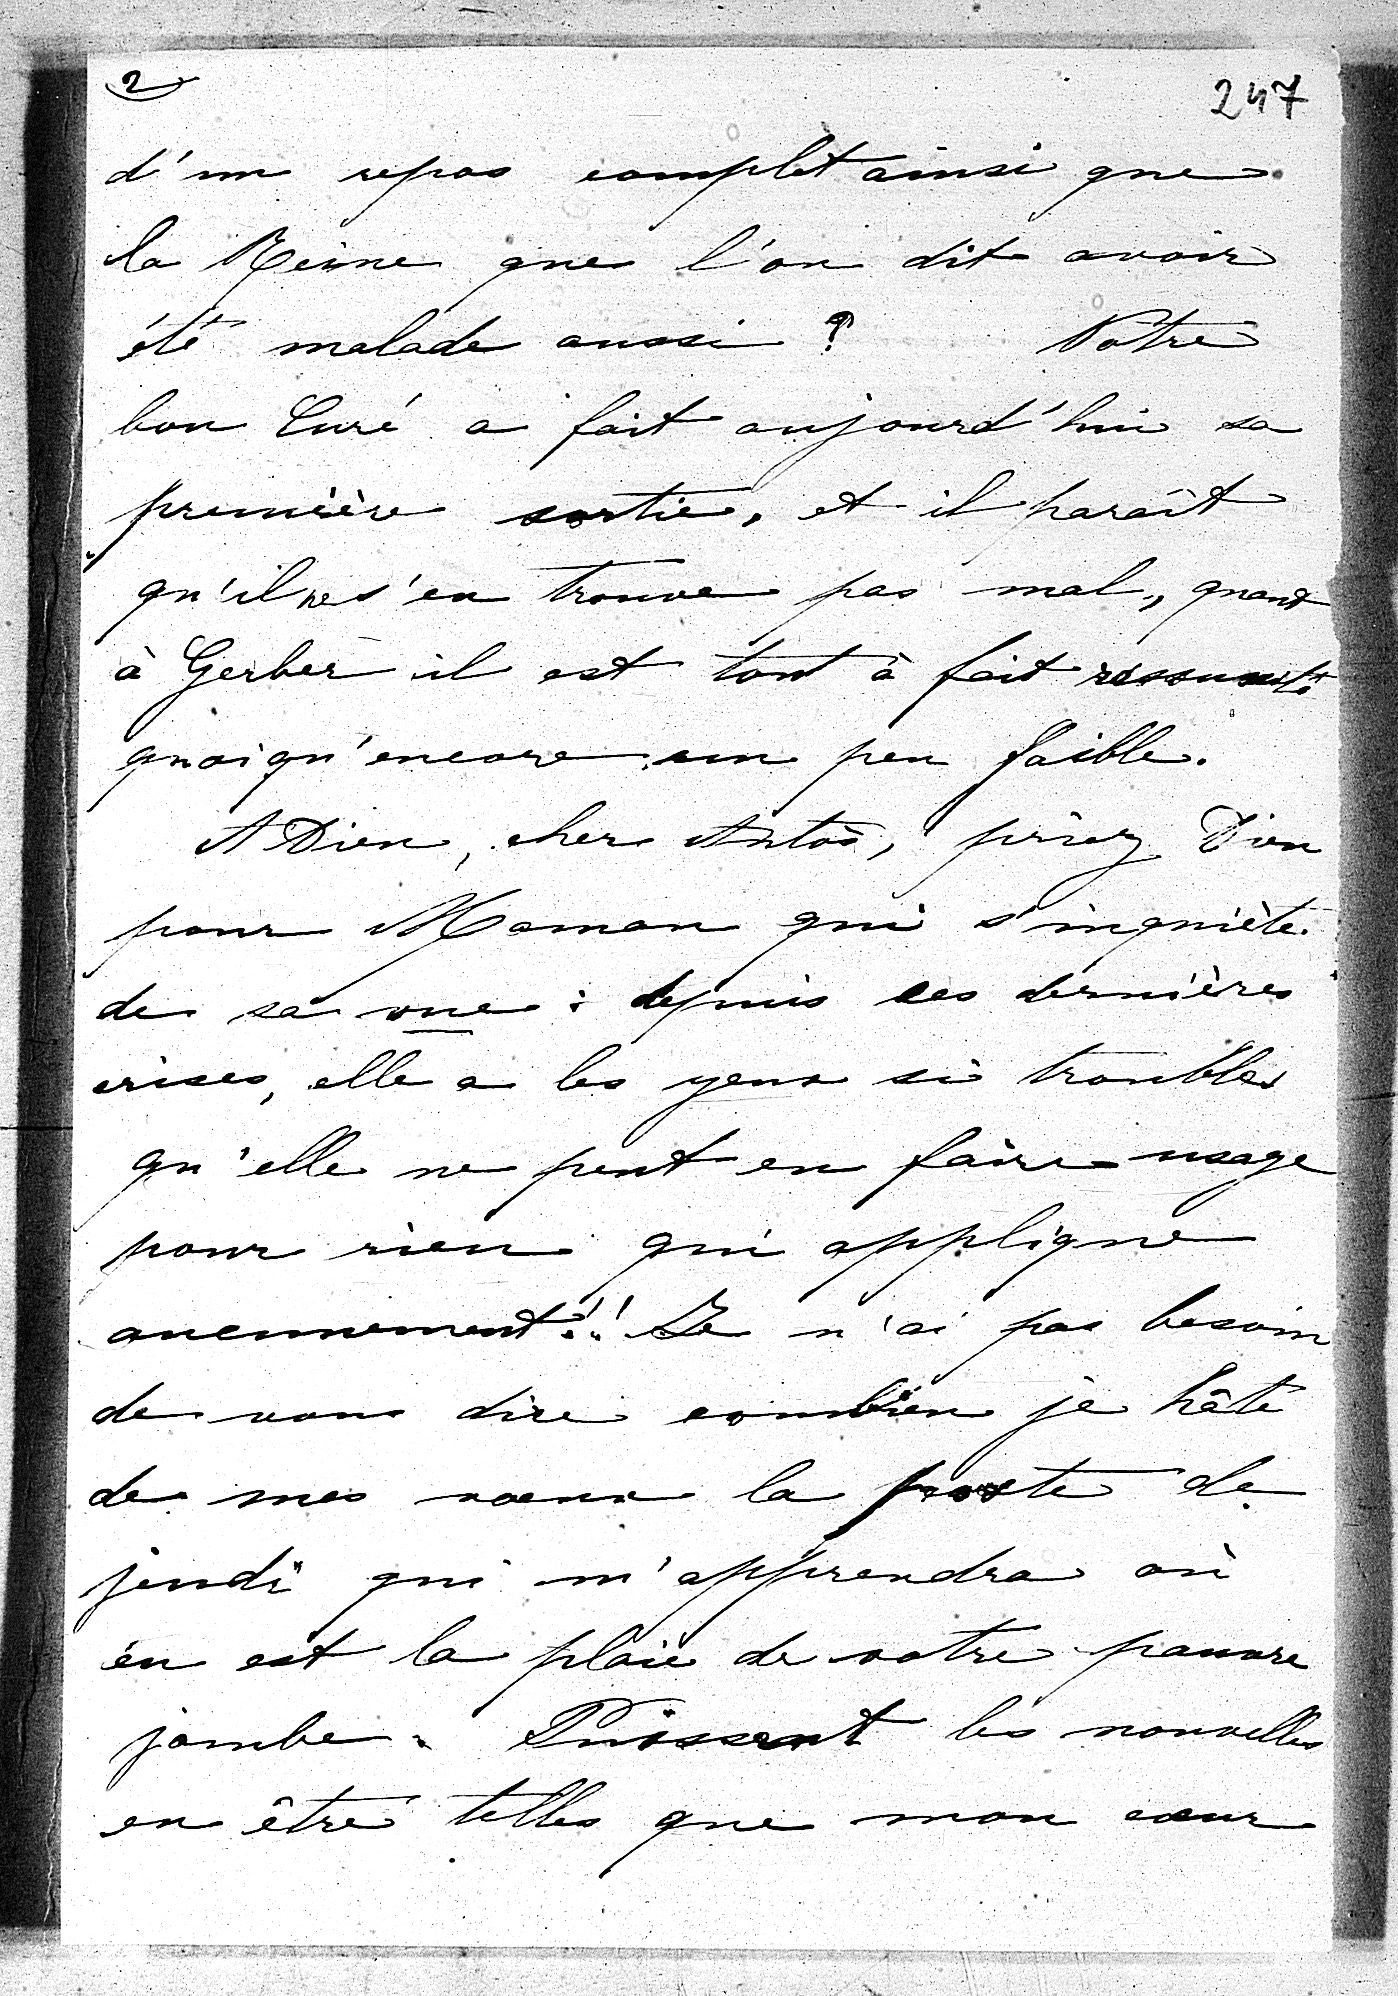 2
247
d'un repos complet ainsi que
la Reine que l'on dit avoir
été malade aussi ? Notre
bon Curé a fait aujourd'hui sa
première sortie, et il paraît
qu'il ne s'en trouve pas mal, quant
à Gerber il est tout à fait ressuscité
quoiqu'encore un peu faible.
A Dieu, cher Antos, priez Dieu
pour Maman qui s'inquiète
de sa vue : depuis ces dernières
crises, elle a les yeux si troubles
qu'elle ne peut en faire usage
pour rien qui applique
aucunement!! Je n'ai pas besoin
de vous dire combien je hâte
de mes voeux la poste de
jeudi qui m'apprendra où
en est la plaie de votre pauvre
jambe. Puissent les nouvelles
en être telles que mon coeur